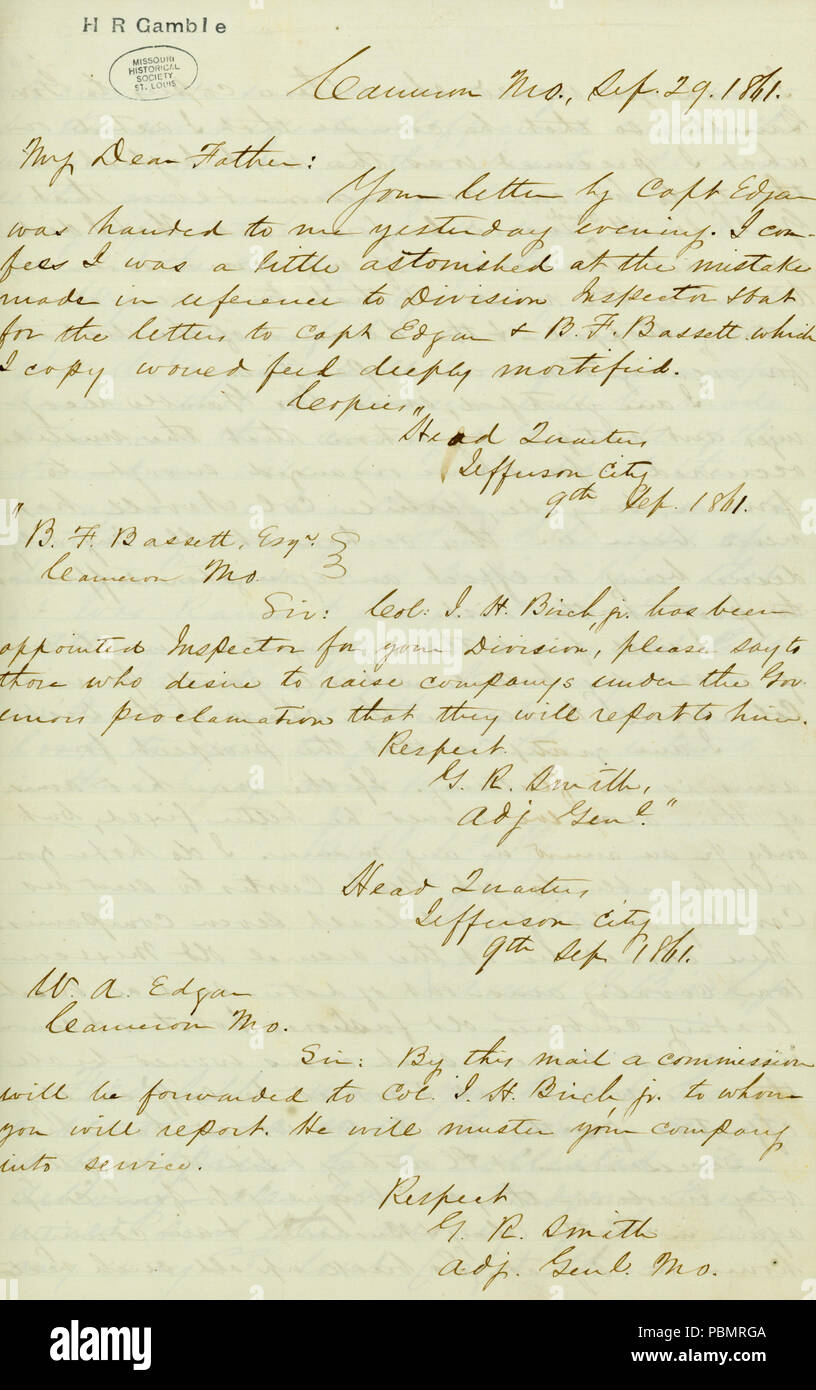 H R Gamble
MISSOURI
HISTORICAL
SOCIETY
ST. LOUIS
Cameron Mo., Sep. 29. 1861.
My Dear Father:
Your letter by Capt Edgar
was handed to me yesterday evening. I con-
fess I was a little astonished at the mistake
made in reference to Division Inspector &
for the letters to Capt Edgar & B. F. Bassett which
I copy would feel deeply mortified.
Copies
"Head Quarters
Jefferson City
9th Sep. 1861.
"B. F. Bassett, Esqr.
Cameron Mo.
Sir: Col: J. H. Birch, jr. has been
appointed Inspector for your Division, please say to
those who desire to raise companys under the Gov-
ernors proclamation that they will report to him.
Respect.
G. R. Smith,
Adj Genl."
Head Quarters
Jefferson City
9th Sep 1861.
W. A. Edgar
Cameron Mo.
Sir: By this mail a commission
will be forwarded to Col. J. H. Birch, jr. to whom
you will report. He will muster your company
into service.
Respect
G. R. Smith
Adj. Genl. Mo.
alamy
Image ID: PBMRGA
www.alamy.com